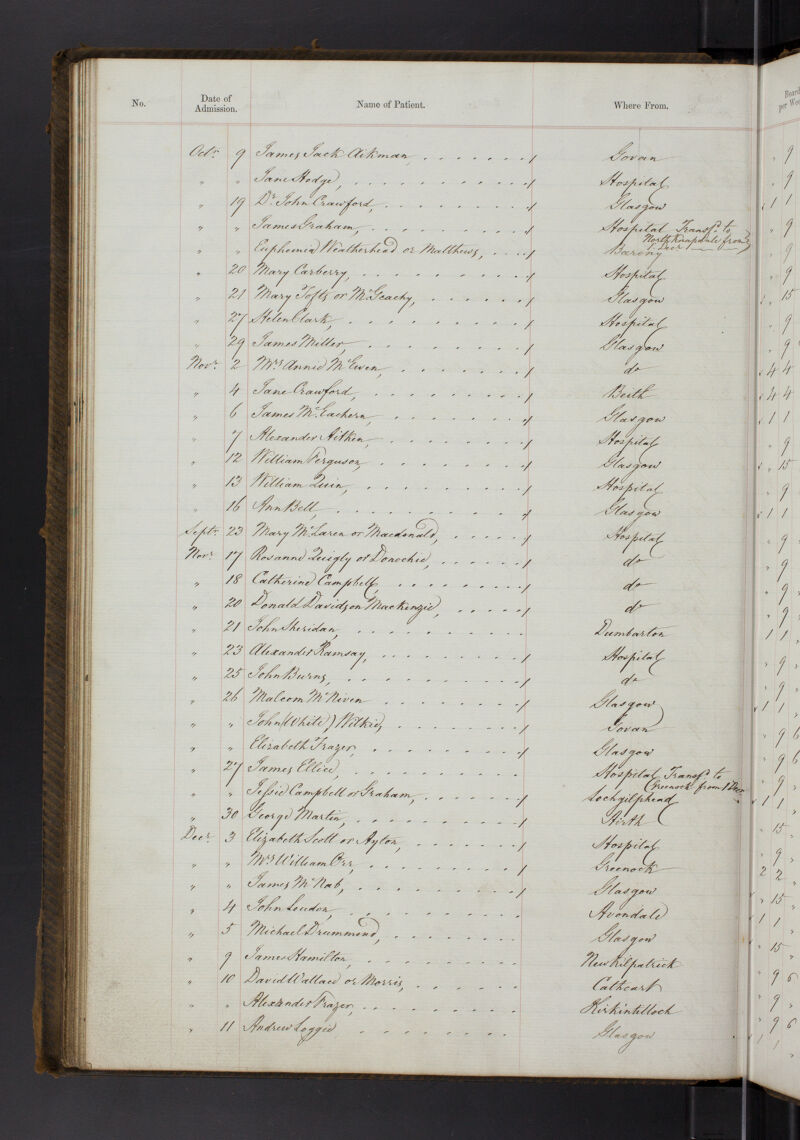 No. Date of Admission. Name of Patient. Where From. Board per Wee
Octr. 9 James Jack Aikman Govan 9
" " Jane Hodge, Hospital 9
" 19 Dr. John Crawford, Glasgow 1 1
" " James Graham, Hospital Transfd. to 9
North Knapdale from
" " Euphemia Weatherhead or Matthews, Barony 9
" 20 Mary Carberry, Hospital 9
" 21 Mary Tofts or McGeachy, Glasgow 15
" 27 Helen Clark, Hospital 9
" 29 James Miller, Glasgow 9
Novr. 2 Mrs Annie McEwen, do 4 4
" 4 Jane Crawford, Beith 4 4
" 6 James McEachern, Glasgow 1 1
" 7 Alexander Aitken, Hospital 9
" 12 William Ferguson, Glasgow 15
" 13 William Quin, Hospital 9
" 16 Ann Bell, Glasgow 1 1
Septr. 23 Mary McLaren or Macdonald, Hospital 9
Novr. 17 Rosanna Quigly or Donochie, do 9
" 18 Catherine Campbell, do 9
" 20 Donald Davidson Mackenzie, do 9
" 21 John Sheridan, Dumbarton 1 1
" 23 Alexander Ramsay, Hospital 9
" 25 John Burns, do 9
" 26 Malcom McNiven Glasgow 1 1
" " John (White) Wilkie, Govan 9 6
" " Elizabeth Frazer, Glasgow 9 6
" 27 James Ellice, Hospital Transfd. to 9
Greenock from 1 Decr
" " Jessie Campbell or Graham, Lochgilphead 1 1
" 30 George Martin, Airth 15
Decr. 3 Elizabeth Scott or Ayton, Hospital 9
" " Mrs William Orr, Greenock 2 2
" " James McNab, Glasgow 15
" 4 John Loudon, Avondale 1 1
" 5 Michael Drummond, Glasgow 15
" 9 James Hamilton, New Kilpatrick 9 6
" 10 David Wallace or Morris, Cathcart 9
" " Alexander Frazer, Kirkintilloch 9 6
" 11 Andrew Loggie Glasgow 1 1